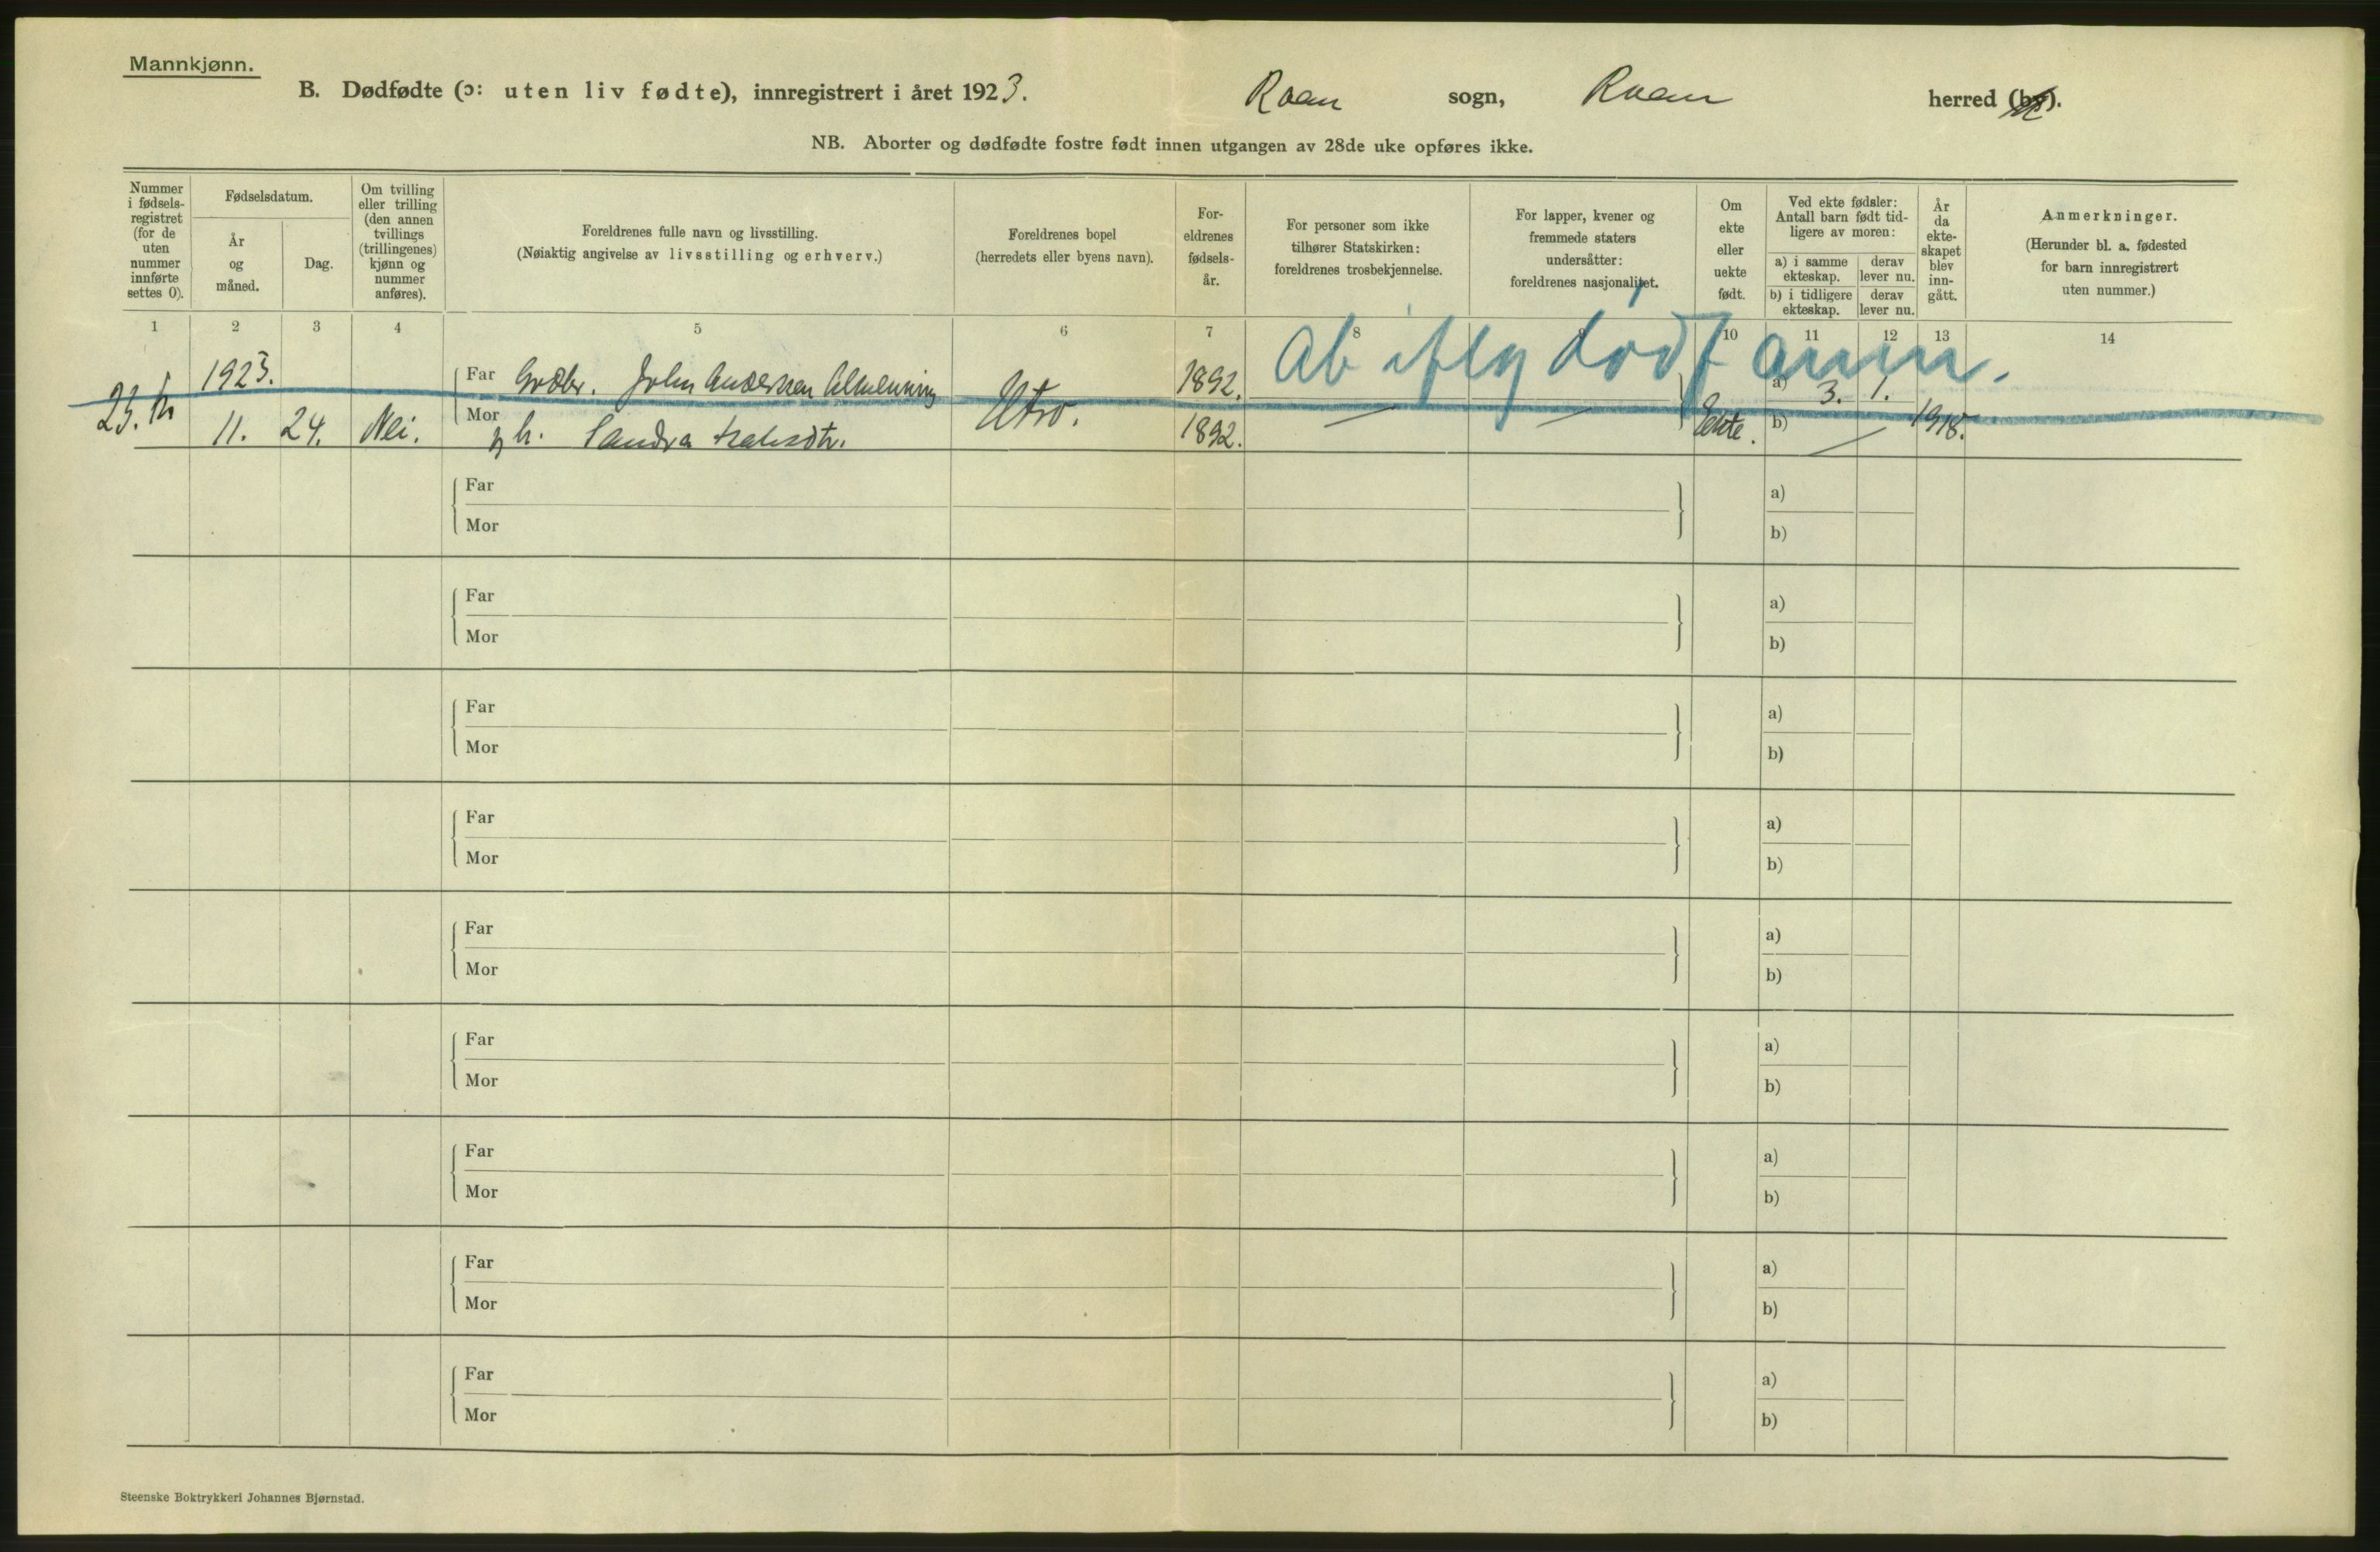 Mannkjønn.
B. Dødfødte (ɔ: uten liv fødte), innregistrert i året 1923. Roan sogn, Roan herred (by).
NB. Aborter og dødfødte fostre født innen utgangen av 28de uke opføres ikke.
Nummer i fødsels-registret (for de uten nummer innførte settes 0).
Fødselsdatum.
År og måned.
Dag.
Om tvilling eller trilling (den annen tvillings (trillingenes) kjønn og nummer anføres).
Foreldrenes fulle navn og livsstilling.
(Nøiaktig angivelse av livsstilling og erhverv.)
Foreldrenes bopel
(herredets eller byens navn).
For-eldrenes fødsels-år.
For personer som ikke tilhører Statskirken: foreldrenes trosbekjennelse.
For lapper, kvener og fremmede staters undersåtter: foreldrenes nasjonalitet.
Om ekte eller uekte født.
Ved ekte fødsler: Antall barn født tid-ligere av moren:
a) i samme ekteskap.
derav lever nu.
b) i tidligere ekteskap.
derav lever nu.
År da ekte-skapet blev inn-gått.
Anmerkninger.
(Herunder bl. a. fødested for barn innregistrert uten nummer.)
1 2 3 4 5 6 7 8 9 10 11 12 13 14
Ab iflg dødf anm.
1923. Far Grdbr. John Andersen Almenning 1892. a) 3. 1.
23. 11. 24. Nei. Mor h. Sandra 1892. Ekte. b) 1918.
Far a)
Mor b)
Far a)
Mor b)
Far a)
Mor b)
Far a)
Mor b)
Far a)
Mor b)
Far a)
Mor b)
Far a)
Mor b)
Far a)
Mor b)
Far a)
Mor b)
Steenske Boktrykkeri Johannes Bjørnstad.